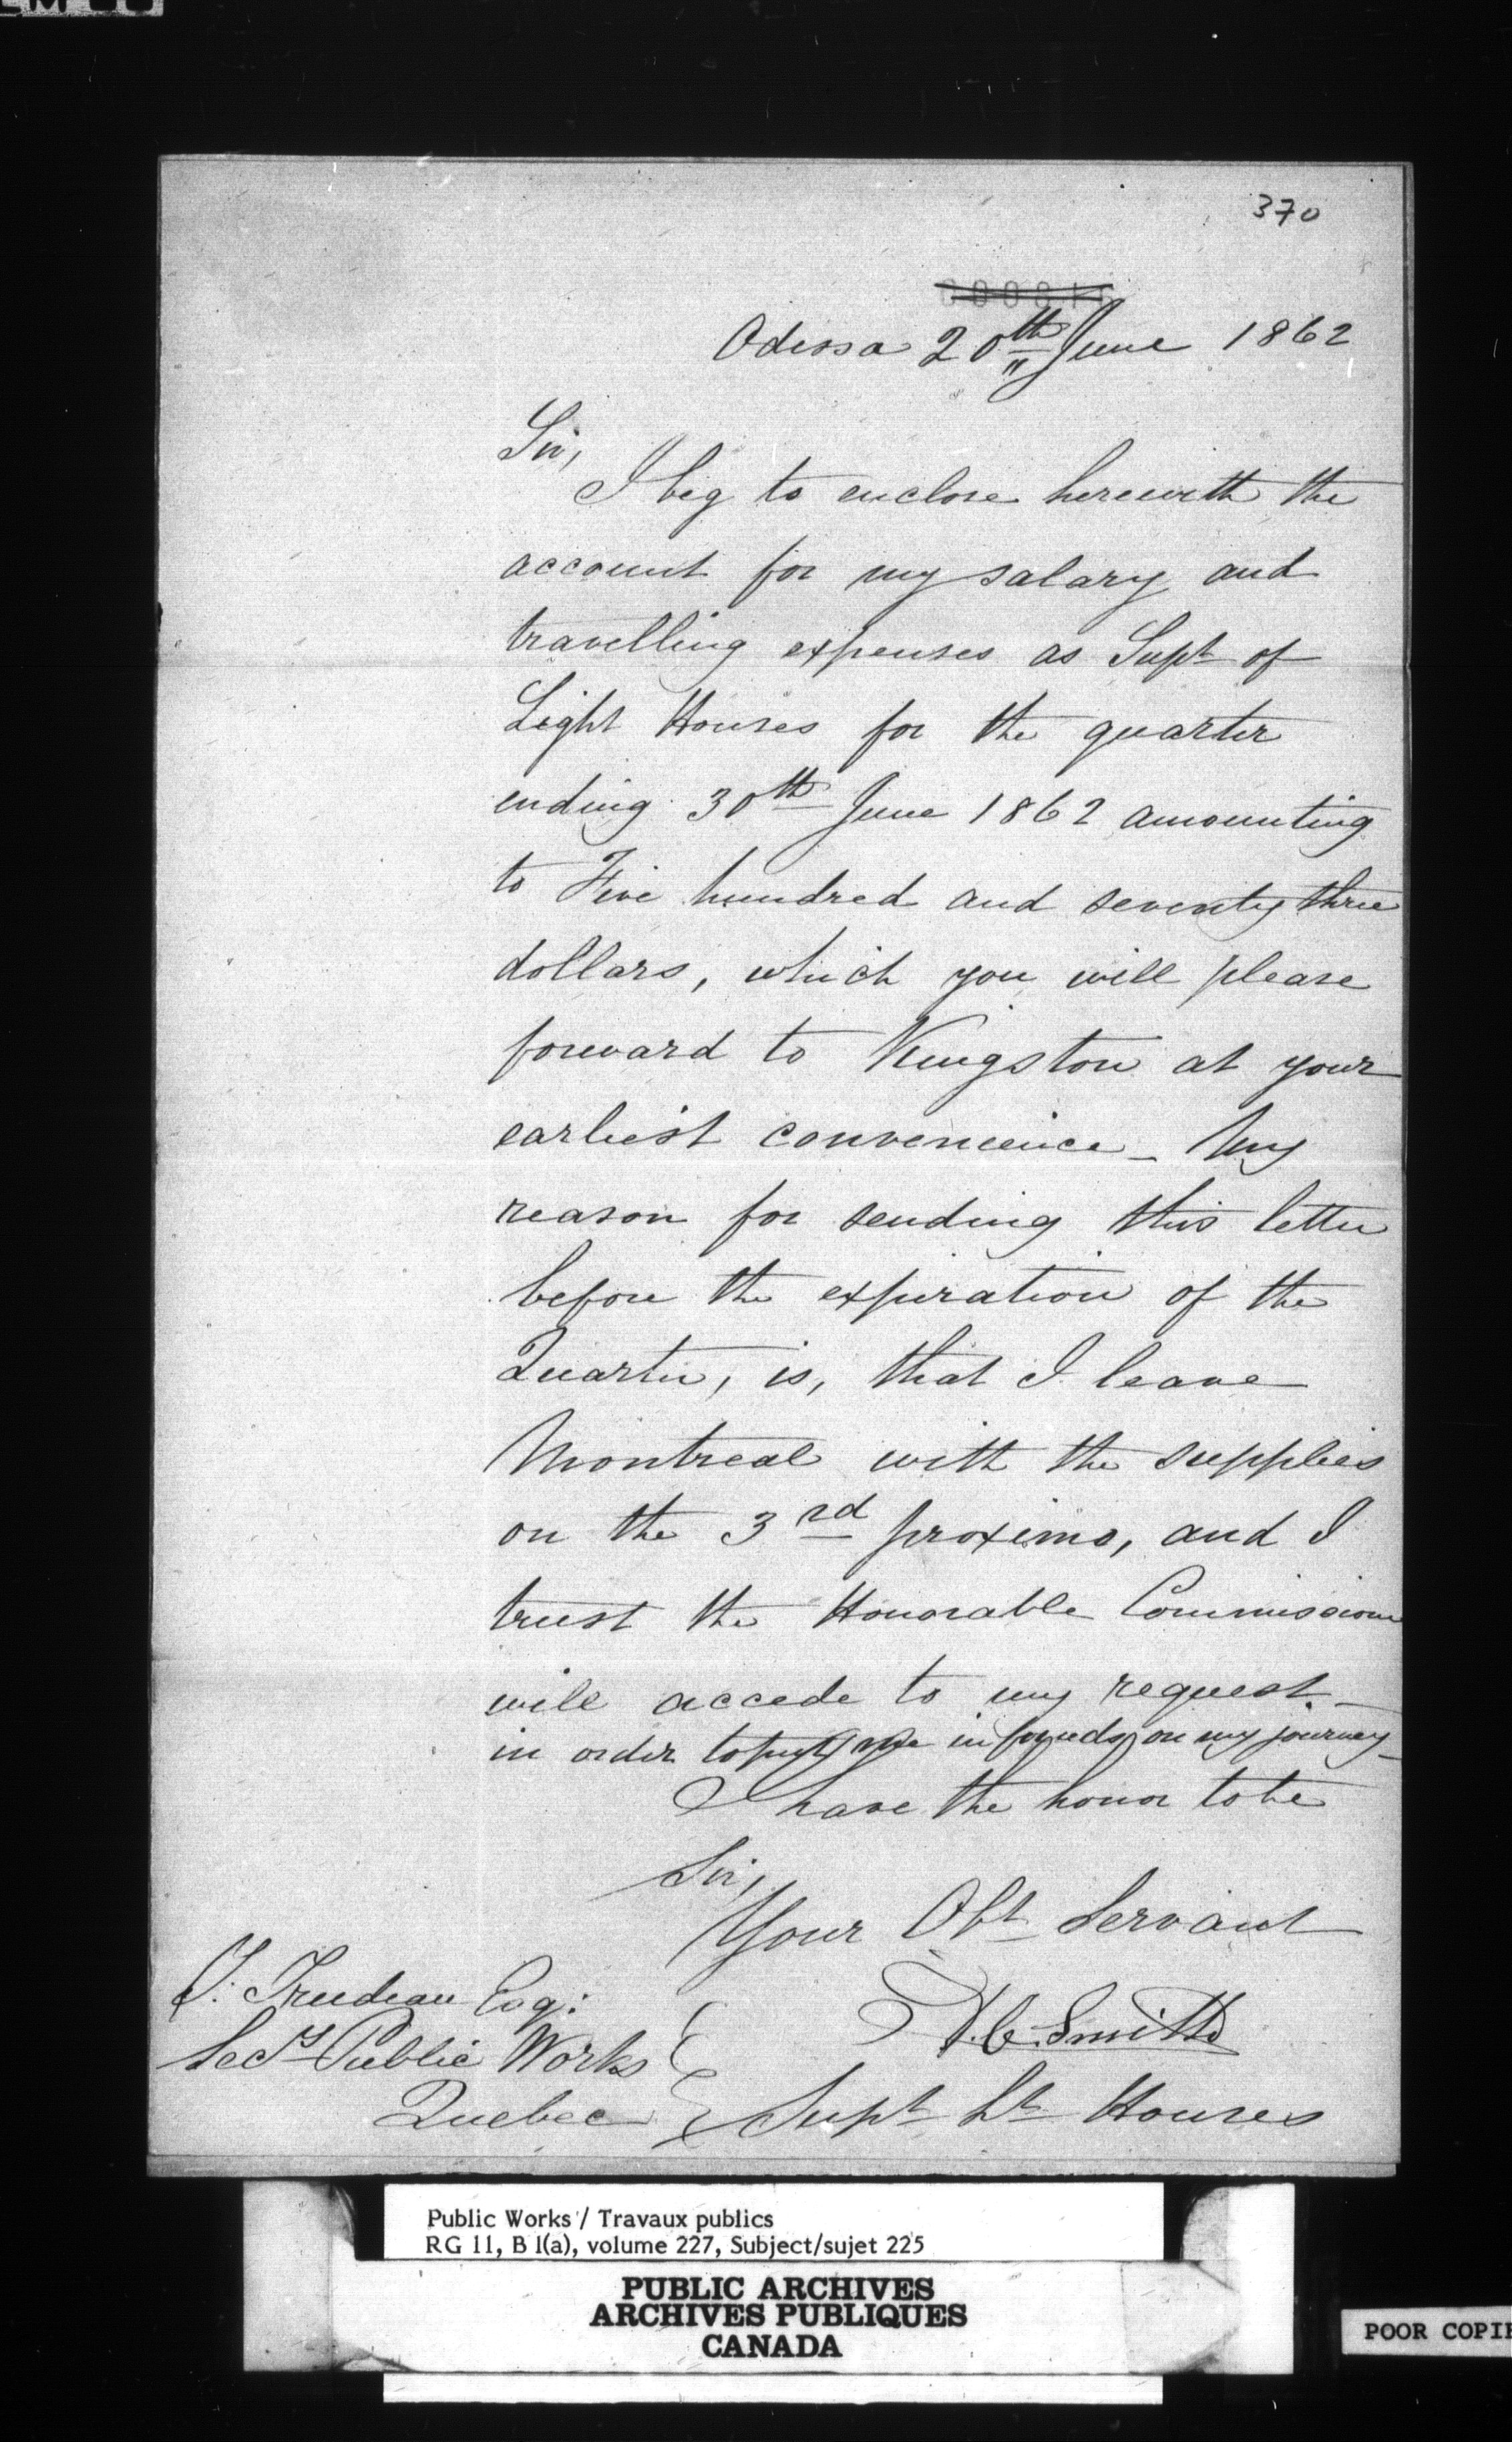 370
Odessa 20th June 1862
Sir,
I beg to enclose herewith the
account for my salary and
travelling expenses as Supt of
Light Houses for the quarter
ending 30th June 1862 amounting
to Five hundred and seventy three
dollars, which you will please
forward to Kingston at your
earliest convenience - My
reason for sending this letter
before the expiration of the
Quarter, is, that I leave
Montreal with the supplies
on the 3rd proximo, and I
trust the Honorable Commissioner
will accede to my request -
in order to put me in funds on my journey -
I have the honor to be
Sir,
Your Obt Servant
Smith
Supt Lt Houses
T. Trudeau Esq:
Secy Public Works
Quebec
Public Works / Travaux publics
RG 11, B 1(a), volume 227, Subject/sujet 225
PUBLIC ARCHIVES
ARCHIVES PUBLIQUES
CANADA
POOR COPIE